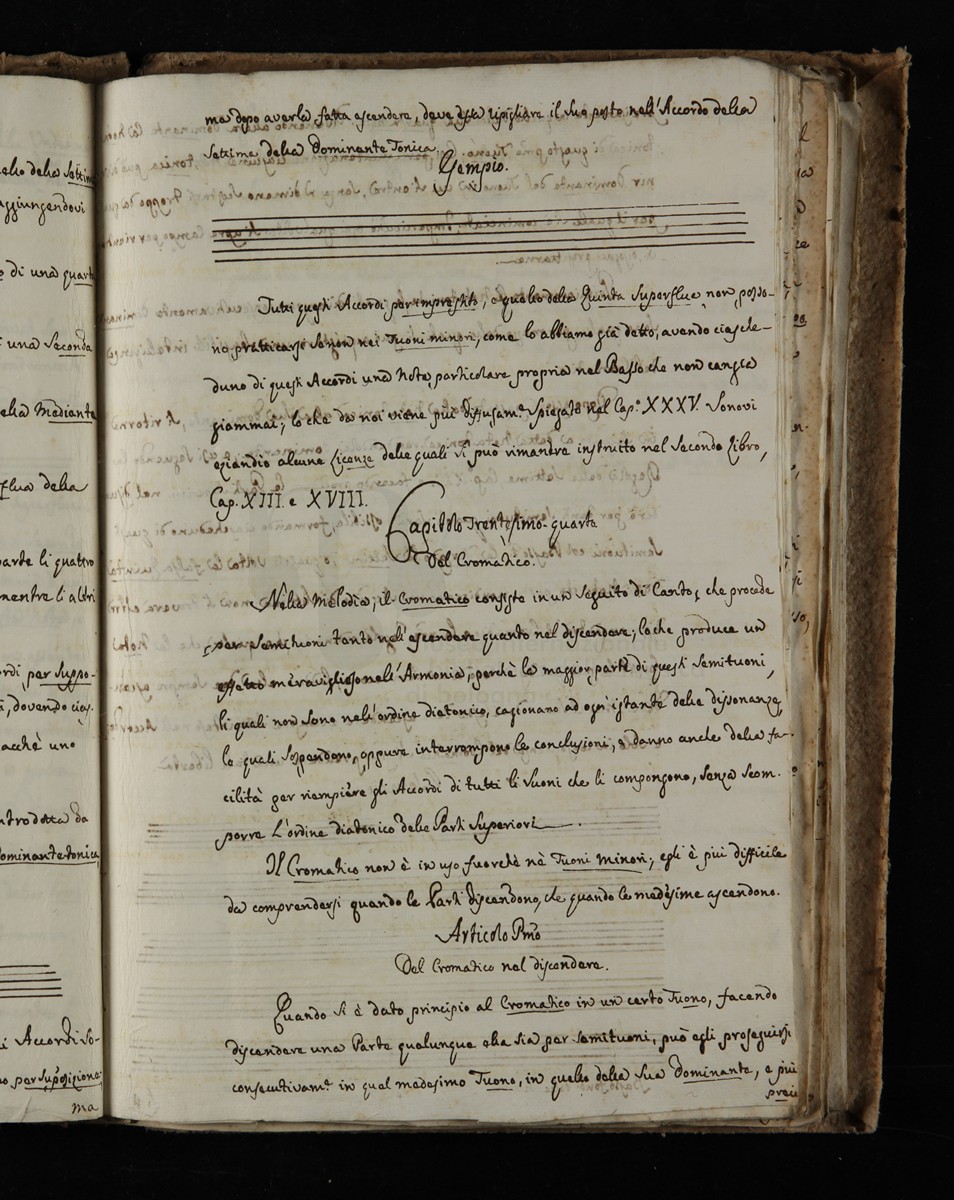 ma dopo averla fatta ascendere, deve essa ripigliare il suo posto nell'Accordo della
Settima della Dominante Tonica.
Esempio.
Tutti questi Accordi per imprestito, e quello della Quinta Superflua non posso-
no praticarsi se non nei Tuoni minori, come lo abbiamo già detto, avendo ciasche-
duno di questi Accordi una Nota particolare propria nel Basso che non cangia
giammai; lo che da noi viene più diffusam.e spiegato nel Cap.o XXXV. Sonovi
eziandio alcune Licenze delle quali si può rimanere instruito nel Secondo Libro,
Cap. XIII. e XVIII.
Capitolo Trentesimo-quarto
Del Cromatico.
Nella Melodia, il Cromatico consiste in un seguito di Canto, che procede
per Semituoni tanto nell'ascendere quanto nel discendere; lo che produce un
effetto meraviglioso nell'Armonia, perchè la maggior parte di questi Semituoni,
li quali non sono nell'ordine diatonico, cagionano ad ogn'istante delle dissonanze,
le quali sospendono, oppure interrompono le conclusioni, e danno anche della fa-
cilità per riempière gli Accordi di tutti li Suoni che li compongono, senza scom-
porre l'ordine diatonico delle Parti Superiori.
Il Cromatico non è in uso fuorchè nè Tuoni minori; egli è più difficile
da comprendersi quando le Parti discendono, che quando le medesime ascendono.
Articolo Pmo
Del Cromatico nel discendere.
Quando si è dato principio al Cromatico in un certo Tuono, facendo
discendere una Parte qualunque ella sia per semituoni, può egli proseguirsi
consecutivam.e in quel medesimo Tuono, in quello della sua Dominante, e più
preci
ello della Settim
aggiungendovi
o di una quart
i una Seconda
ella Mediante
flua della
parte li quattro
mentre li altri
ordi per Suppo-
i, dovendo cias-
acchè uno
ntrodotta da
Dominante tonica
i Accordi So-
o per supposizione;
ma